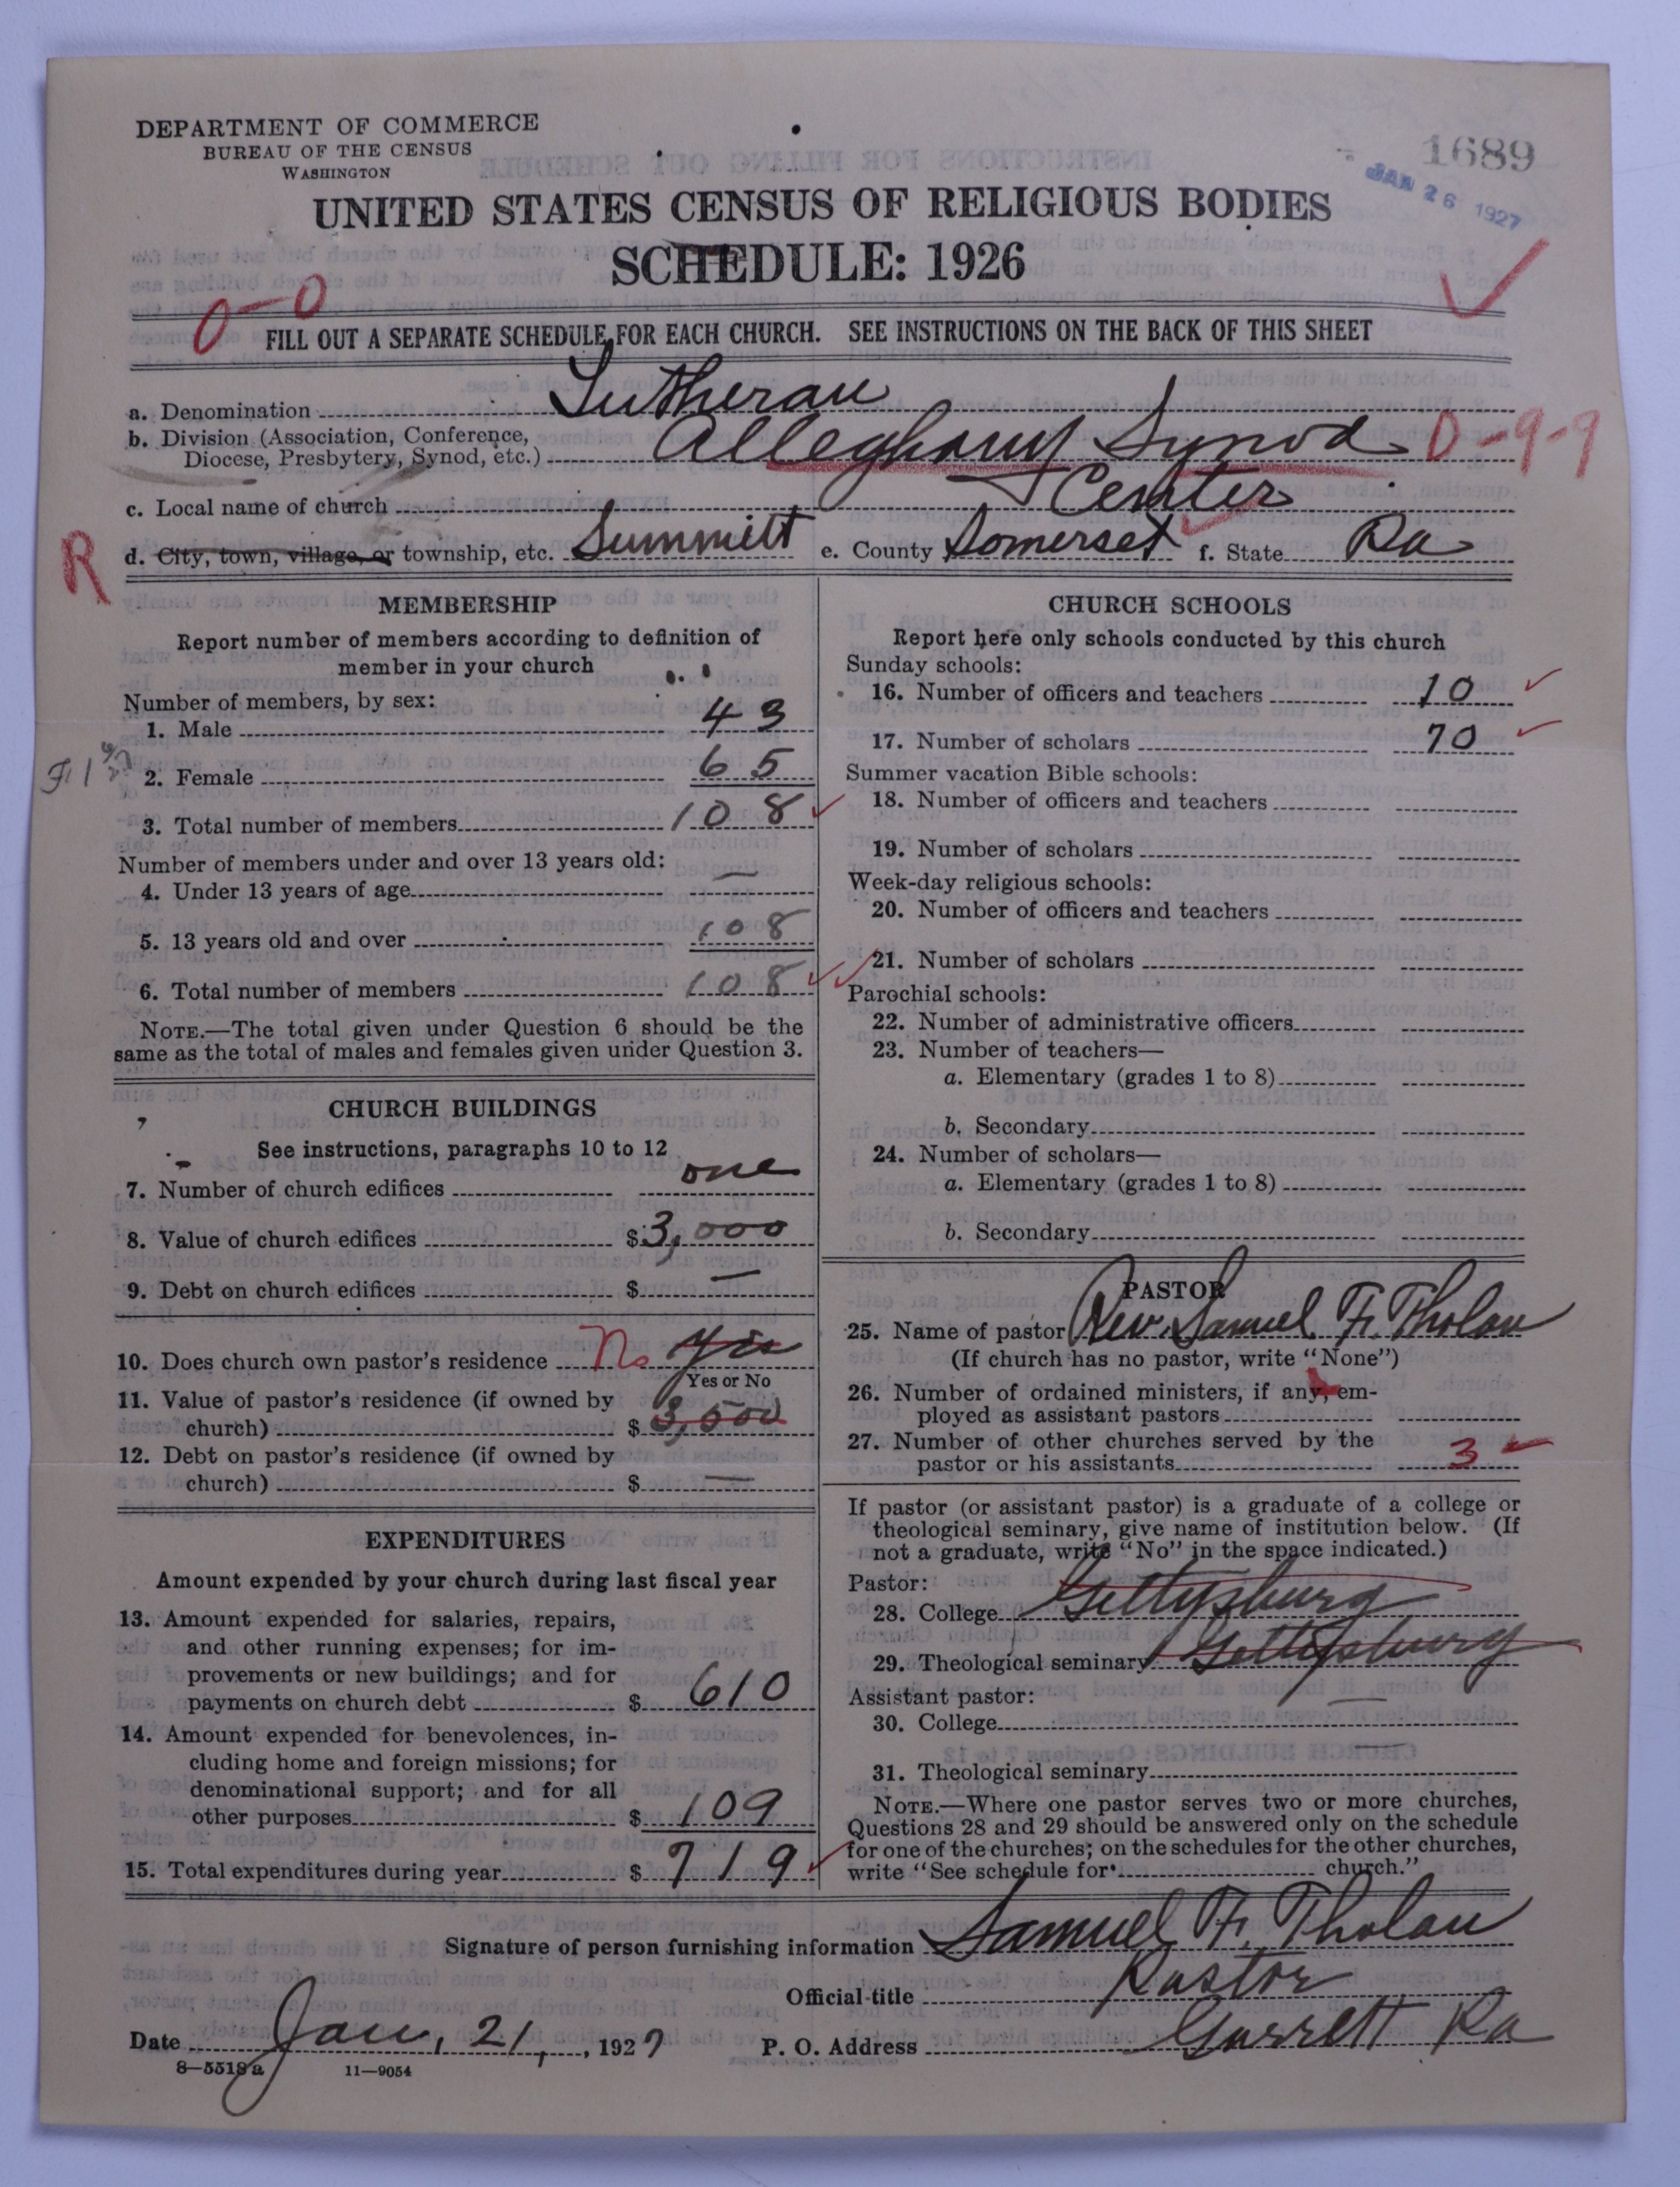 DEPARTMENT OF COMMERCE
BUREAU OF THE CENSUS
WASHINGTON
1689
JAN 26 1927
UNITED STATES CENSUS OF RELIGIOUS BODIES
SCHEDULE: 1926
0-0
FILL OUT A SEPARATE SCHEDULE FOR EACH CHURCH. SEE INSTRUCTIONS ON THE BACK OF THIS SHEET
a. Denomination Lutheran
b. Division (Association, Conference,
Diocese, Presbytery, Synod, etc.) Alleghany Synod 0-9-9
c. Local name of church Center
R d. City, town, village, or township, etc. Summitt e. County Somerset f. State Pa
MEMBERSHIP
Report number of members according to definition of
member in your church
Number of members, by sex:
1. Male 43
2. Female 65
3. Total number of members 108
Number of members under and over 13 years old:
4. Under 13 years of age —
5. 13 years old and over 108
6. Total number of members 108
NOTE.—The total given under Question 6 should be the
same as the total of males and females given under Question 3.
CHURCH BUILDINGS
See instructions, paragraphs 10 to 12
7. Number of church edifices one
8. Value of church edifices $3,000
9. Debt on church edifices $ —
10. Does church own pastor's residence No yes
Yes or No
11. Value of pastor's residence (if owned by
church) $ 3,500
12. Debt on pastor's residence (if owned by
church) $ —
EXPENDITURES
Amount expended by your church during last fiscal year
13. Amount expended for salaries, repairs,
and other running expenses; for im-
provements or new buildings; and for
payments on church debt $ 610
14. Amount expended for benevolences, in-
cluding home and foreign missions; for
denominational support; and for all
other purposes $ 109
15. Total expenditures during year $ 719
CHURCH SCHOOLS
Report here only schools conducted by this church
Sunday schools:
16. Number of officers and teachers 10
17. Number of scholars 70
Summer vacation Bible schools:
18. Number of officers and teachers
19. Number of scholars
Week-day religious schools:
20. Number of officers and teachers
21. Number of scholars
Parochial schools:
22. Number of administrative officers
23. Number of teachers—
a. Elementary (grades 1 to 8)
b. Secondary
24. Number of scholars—
a. Elementary (grades 1 to 8)
b. Secondary
PASTOR
25. Name of pastor Rev. Samuel F. Tholan
(If church has no pastor, write "None")
26. Number of ordained ministers, if any, em-
ployed as assistant pastors
27. Number of other churches served by the
pastor or his assistants 3
If pastor (or assistant pastor) is a graduate of a college or
theological seminary, give name of institution below. (If
not a graduate, write "No" in the space indicated.)
Pastor:
28. College Gettysburg
29. Theological seminary Gettysburg
Assistant pastor:
30. College —
31. Theological seminary —
NOTE.—Where one pastor serves two or more churches,
Questions 28 and 29 should be answered only on the schedule
for one of the churches; on the schedules for the other churches,
write "See schedule for church."
Signature of person furnishing information Samuel F. Tholan
Official title Pastor
Date Jan, 21, 1927 P. O. Address Garrett Pa
8—5518 a 11—9054